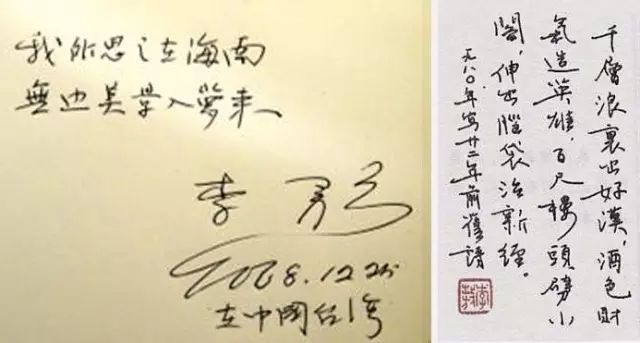 我所思之在海南
無边美景入夢来
李
2008.12.25
在中国
千層浪裏出好漢,酒色財
氣造英雄,百尺樓頭劈小
閣,伸出腦袋治新經。
一九八〇年寫廿二年前舊詩